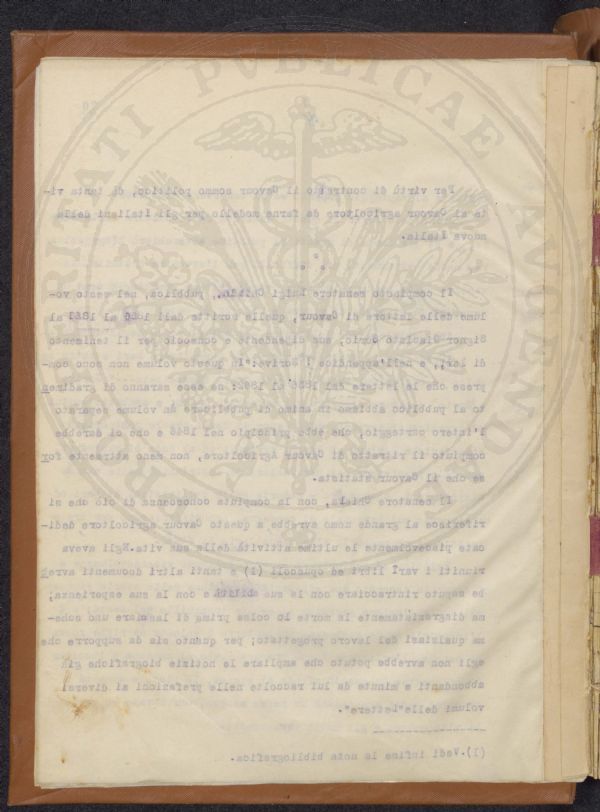 Per virtù di contrasto il Cavour sommo politico, di tanta vi-
ta al Cavour agricoltore da farne modello per gli Italiani della
nuova Italia.
Il compianto senatore Luigi Chiala, pubblica, nel sesto vo-
lume delle lettere di Cavour, quelle scritte dall' al 1861 al
Signor Giacinto Corio, suo dipendente e consocio per il tenimento
di Leri, e nell'appendice scrive: "In questo volume non sono com-
prese che le lettere dal 1856 al : se esse saranno di gradimen
to al pubblico abbiamo in animo di pubblicare in volume separato
l'intero carteggio, che ebbe principio nel 1843 e che ci darebbe
compiuto il ritratto di Cavour Agricoltore, non meno attraente for
se che il Cavour statista.
Il senatore Chiala, con la compiuta conoscenza di ciò che si
riferisce al grande uomo avrebbe a questo Cavour agricoltore dedi-
cate piacevolmente le ultime attività della sua vita. Egli aveva
riuniti i varî libri ed opuscoli (1) e tanti altri documenti avreb
be saputo rintracciare con la sua abilità e con la sua esperienza;
ma disgraziatamente la morte lo colse prima di lasciare uno sche-
ma qualsiasi del lavoro progettato; per quanto sia da supporre che
egli non avrebbe potuto che ampliare le notizie biografiche già
abbondanti e minute da lui raccolte nelle prefazioni ai diversi
volumi delle "Lettere".
(1). Vedi infine la nota bibliografica.
PVBLICAE